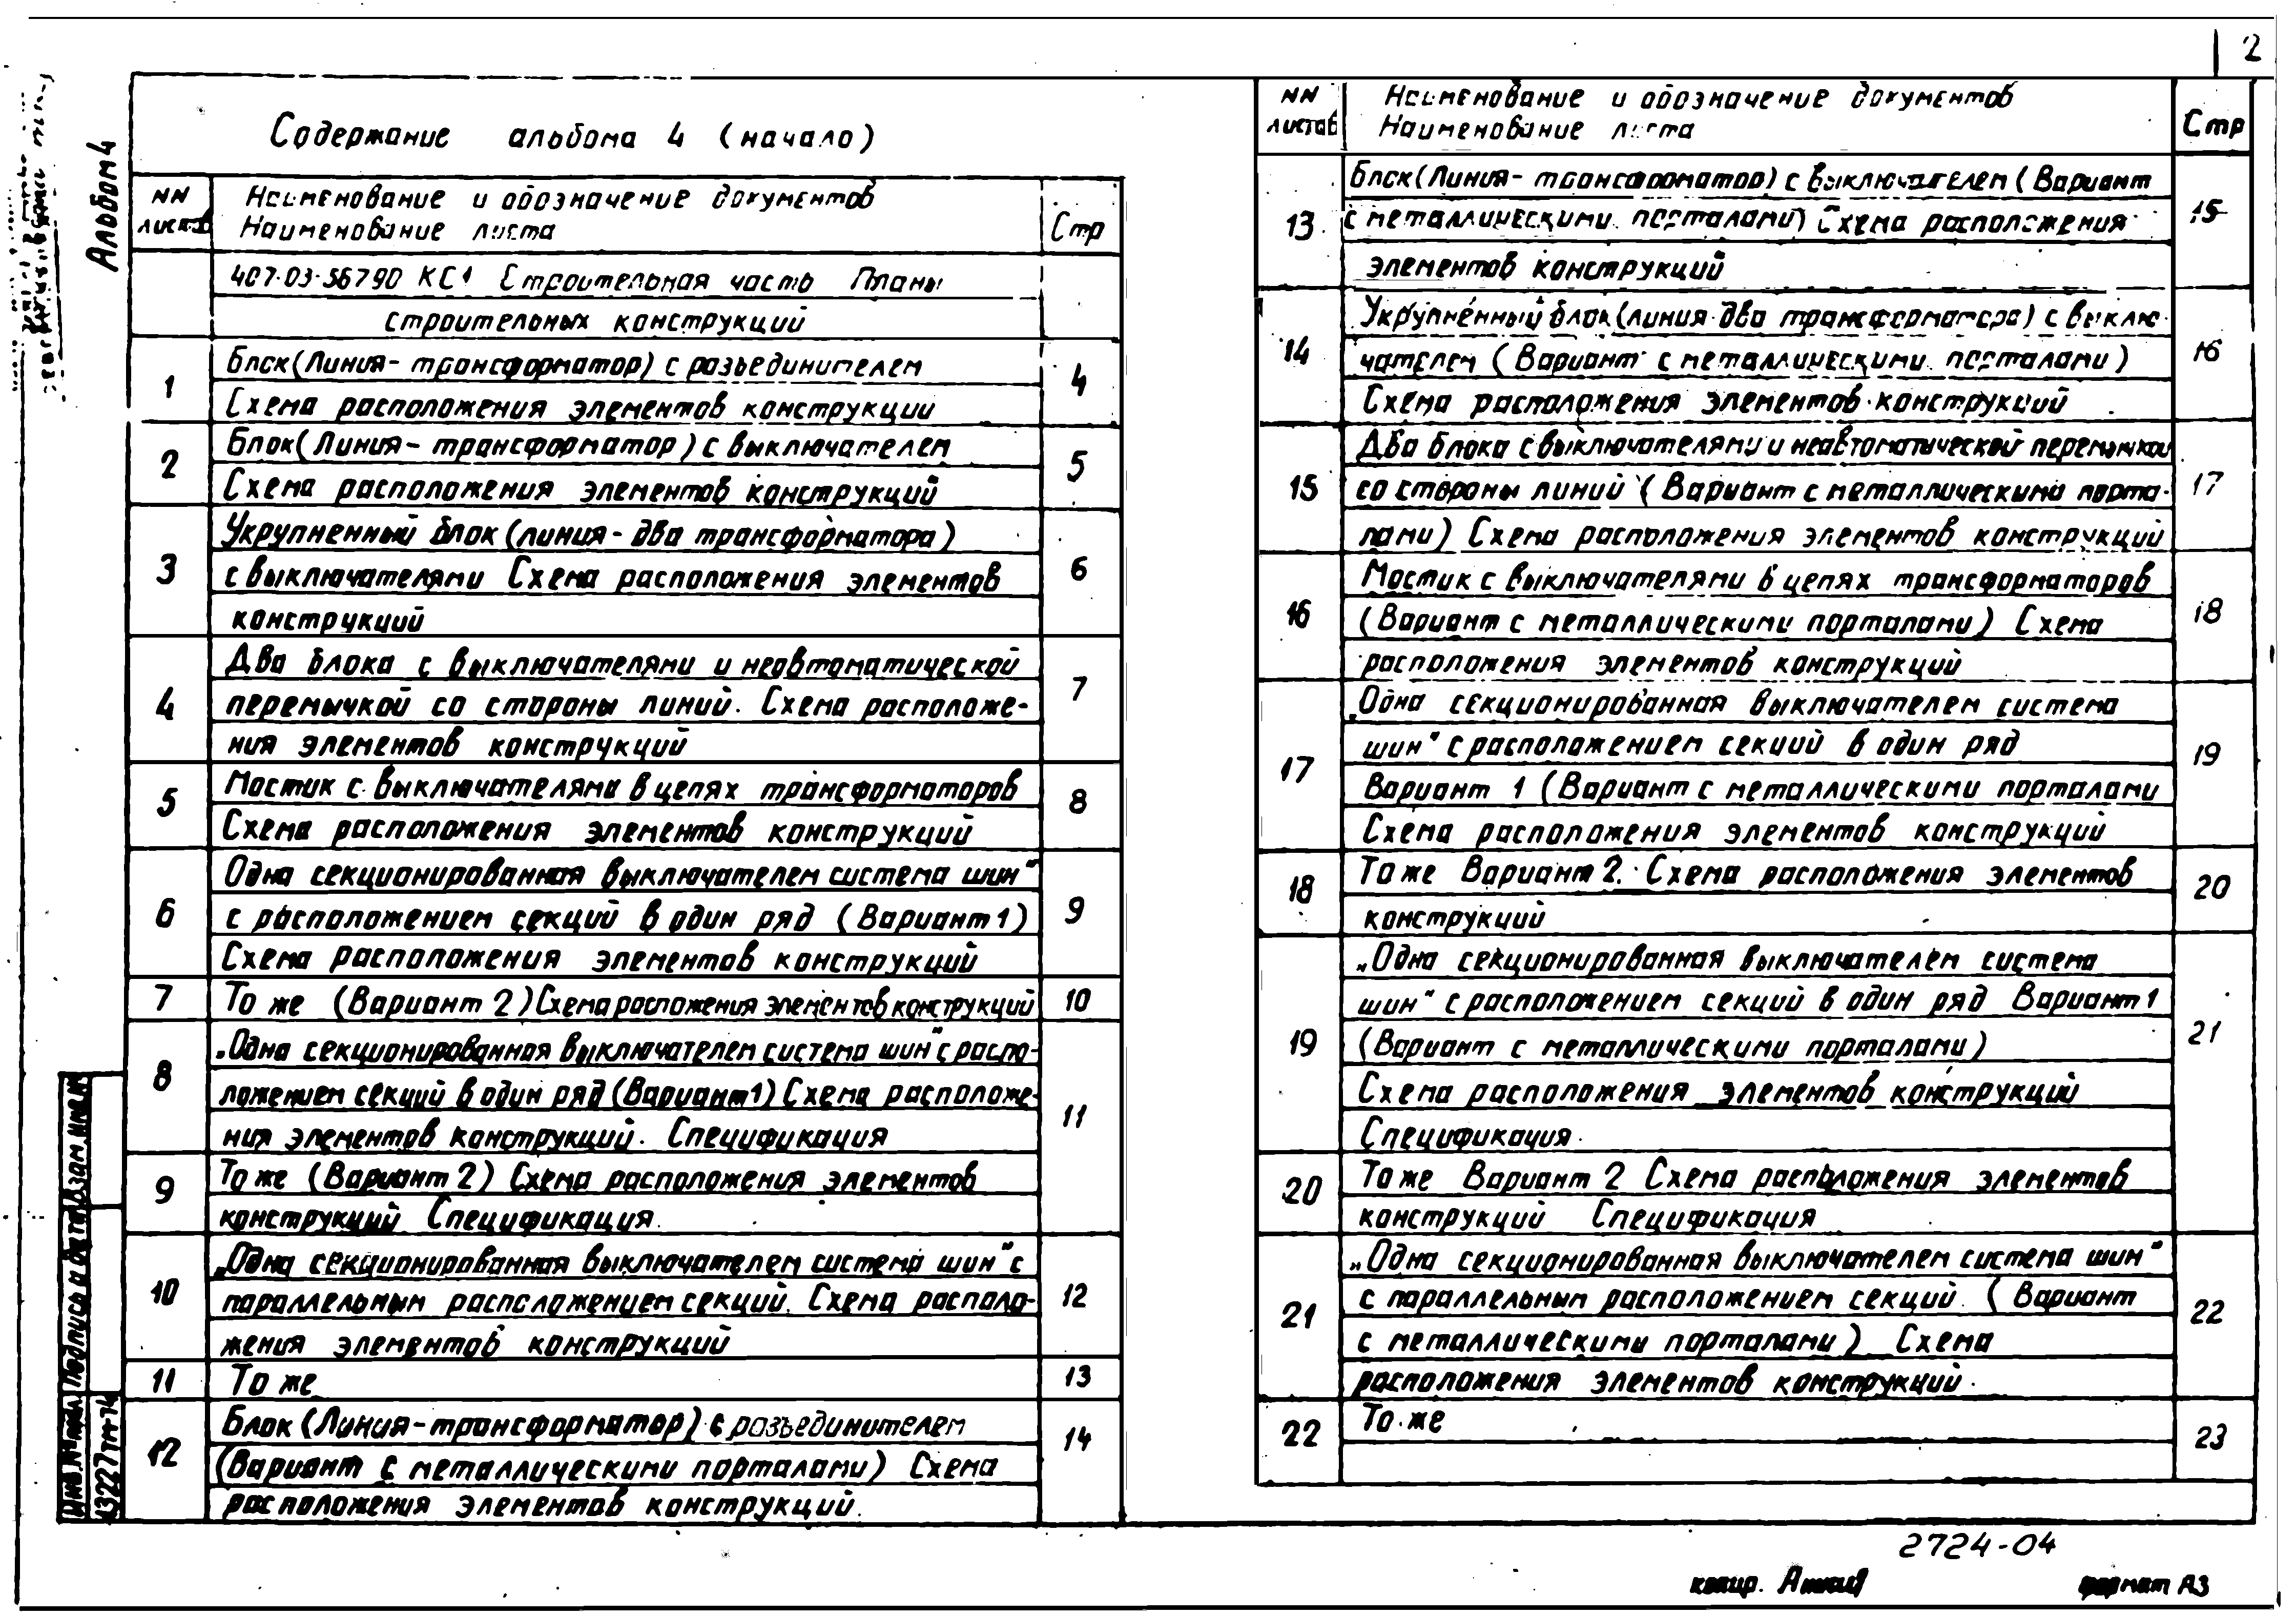 2
Альбом 4
Содержание альбома 4 (начало)
NN листов
Наименование и обозначение документов
Наименование листа
Стр
407-03-567 90 КС1 Строительная часть Планы
строительных конструкций
1
Блок (Линия - трансформатор) с разъединителем
4
Схема расположения элементов конструкции
2
Блок (Линия - трансформатор) с выключателем
5
Схема расположения элементов конструкций
3
Укрупненный блок (линия - два трансформатора)
6
с выключателями Схема расположения элементов
конструкций
4
Два блока с выключателями и неавтоматической
7
перемычкой со стороны линий. Схема расположе-
ния элементов конструкций
5
Мостик с выключателями в цепях трансформаторов
8
Схема расположения элементов конструкций
6
Одна секционированная выключателем система шин"
9
с расположением секций в один ряд (Вариант 1)
Схема расположения элементов конструкций
7
То же (Вариант 2) Схема расположения элементов конструкций
10
8
„Одна секционированная выключателем система шин" с распо-
11
ложением секций в один ряд (Вариант 1) Схема расположе-
ния элементов конструкций. Спецификация
9
То же (Вариант 2) Схема расположения элементов
конструкций Спецификация.
10
„Одна секционированная выключателем система шин" с
12
параллельным расположением секций. Схема располо-
жения элементов конструкций
11
То же
13
12
Блок (Линия - трансформатор) с разъединителем
14
(Вариант с металлическими порталами) Схема
расположения элементов конструкций.
NN листов
Наименование и обозначение документов
Наименование листа
Стр
13
Блок (Линия - трансформатор) с выключателем (Вариант
15
с металлическими порталами) Схема расположения
элементов конструкций
14
Укрупненный блок (линия - два трансформатора) с выклю-
16
чателем (Вариант с металлическими порталами)
Схема расположения элементов конструкций
15
Два блока с выключателями и неавтоматической перемычкой
17
со стороны линий (Вариант с металлическими порта-
лами) Схема расположения элементов конструкций
16
Мостик с выключателями в цепях трансформаторов
18
(Вариант с металлическими порталами) Схема
расположения элементов конструкций
17
„Одна секционированная выключателем система
19
шин" с расположением секций в один ряд
Вариант 1 (Вариант с металлическими порталами
Схема расположения элементов конструкций
18
То же Вариант 2. Схема расположения элементов
20
конструкций
19
„Одна секционированная выключателем система
21
шин" с расположением секций в один ряд Вариант 1
(Вариант с металлическими порталами)
Схема расположения элементов конструкций
Спецификация.
20
То же Вариант 2 Схема расположения элементов
конструкций Спецификация
21
„Одна секционированная выключателем система шин"
22
с параллельным расположением секций. (Вариант
с металлическими порталами) Схема
расположения элементов конструкций.
22
То же
23
Инв. № подл. Подпись и дата Взам. инв. №
13227тм-т4
2724-04
копир.
формат А3